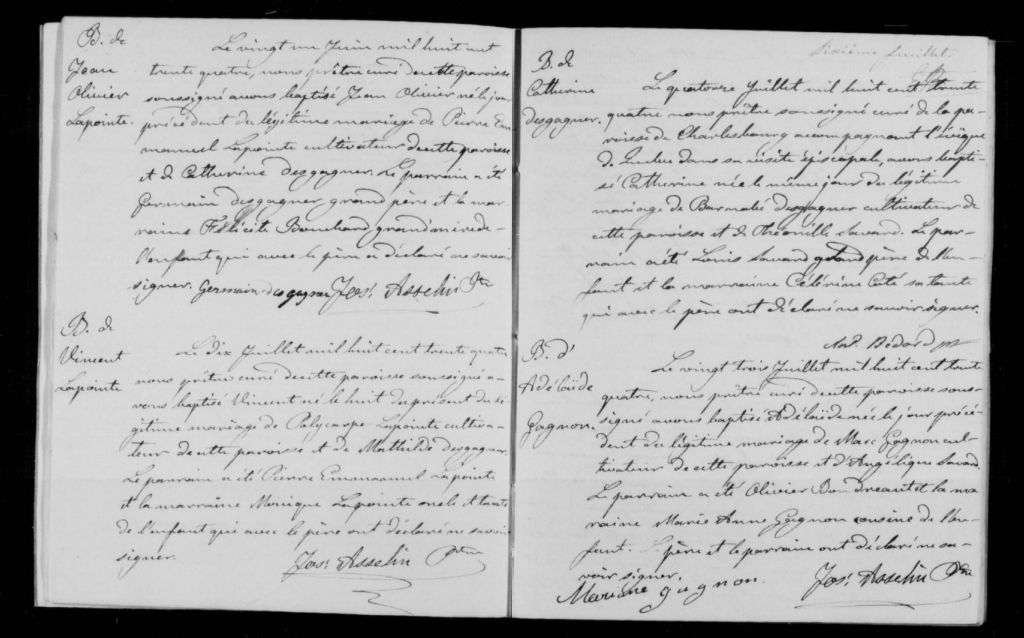 B. de
Jean
Olivier
Lapointe.
Le vingt un Juin mil huit cent
trente quatre, nous prêtre curé de cette paroisse
soussigné avons baptisé Jean Olivier né le jour
précédent du légitime mariage de Pierre Em-
manuel Lapointe cultivateur de cette paroisse
et de Catherine desgagner. Le parrain a été
Germain desgagner grand père et la mar-
raine Félicité Bouchard grand mère de
l'enfant qui avec le père a déclaré ne savoir
signer. Germain desgagner Jos. Asselin Ptre
B. de
Vincent
Lapointe
Le dix Juillet mil huit cent trente quatre
nous prêtre curé de cette paroisse soussigné a-
vons baptisé Vincent né le huit du présent du lé-
gitime mariage de Polycarpe Lapointe cultiva-
teur de cette paroisse et de Mathilde desgagner.
Le parrain a été Pierre Emmanuel Lapointe
et la marraine Monique Lapointe oncle et tante
de l'enfant qui avec le père ont déclaré ne savoir
signer.
Jos. Asselin Ptre
Sixième feuillet.
B. de
Catherine
desgagner.
Le quatorze Juillet mil huit cent trente
quatre nous prêtre soussigné curé de la pa-
roisse de Charlesbourg accompagnant l'évêque
de dans sa visite épiscopale, avons bapti-
sé Catherine née le même jour du légitime
mariage de Barnabé desgagner cultivateur de
cette paroisse et de Théotille Savard. Le par-
rain a été Louis Savard grand père de l'en-
fant et la marraine Célérine Coté sa tante
qui avec le père ont déclaré ne savoir signer.
Bédard ptre
B. d'
Adélaïde
Gagnon.
Le vingt trois Juillet mil huit cent trente
quatre, nous prêtre curé de cette paroisse sous-
signé avons baptisé Adélaïde née le jour précé-
dent du légitime mariage de Marc Gagnon cul-
tivateur de cette paroisse et d'Angélique Savard.
Le parrain a été Olivier Boudreault et la mar
raine Marie Anne Gagnon cousine de l'en-
fant. Le père et le parrain ont déclaré ne sa-
voir signer.
Mariane gagnon. Jos. Asselin Ptre